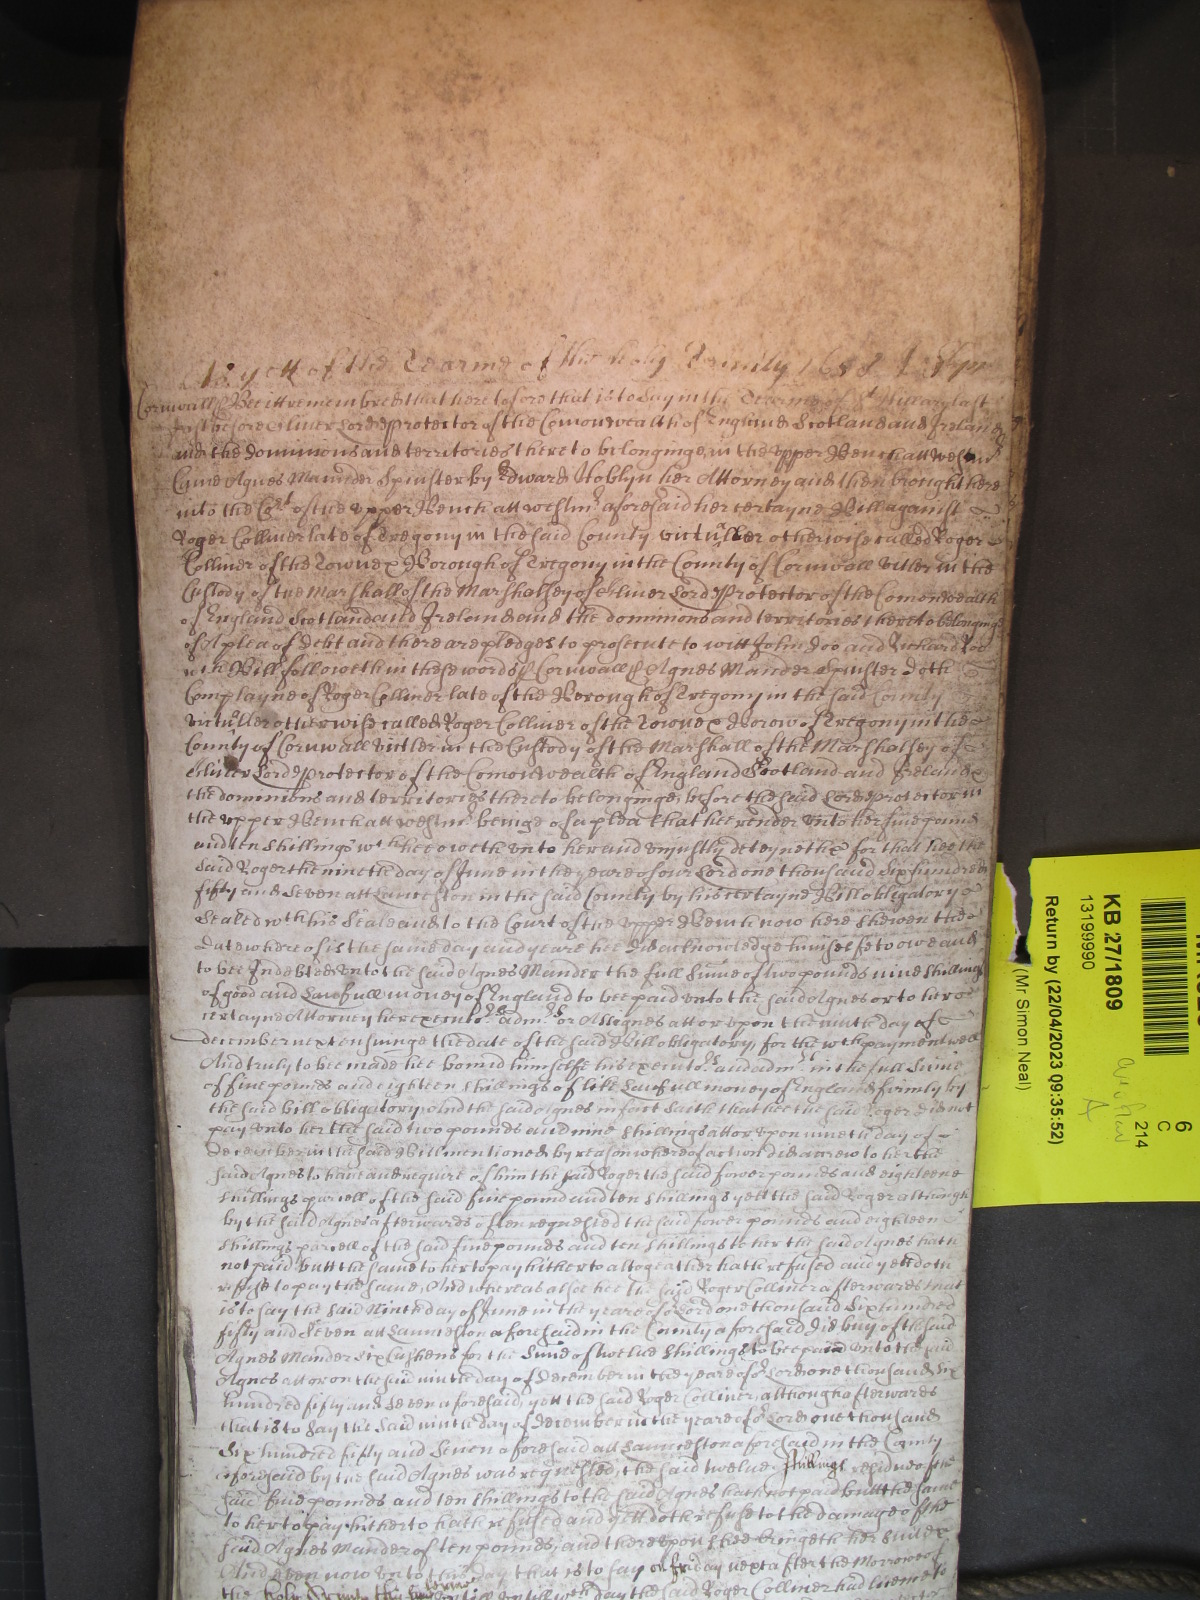 As yett of the Tearme of the holy Trinity 1658
Cornwall ss Bee it remembred that heretofore that is to say in the Tearme of St Hillary last
past before Oliver Lord Protector of the Comonwealth of England Scotland and Ireland
and the dominions and territories thereto belonginge in the upper Bench att Westmr
Came Agnes Mander Spinster by Edward Hoblyn her Attorney and then brought here
into the Cort of the upper Bench att Westmr aforesaid her certayne Bill against
Roger Colliver late of Tregony in the said County victuller otherwise called Roger
Colliver of the Towne & Borough of Tregony in the County of Cornwall vitler in the
Custody of the Marshall of the Marshalsey of Oliver Lord Protector of the Comonwealth
of England Scotland and Ireland and the dominions and territories thereto belonging
of A plea of Debt and there are pledges to prosecute to witt John Doo and Richard Roo
wch Bill followeth in these words ss Cornwall ss Agnes Mander Spinster doth
Complayne of Roger Colliver late of the Borough of Tregony in the said County
victuller otherwise called Roger Colliver of the Towne & Borow of Tregony in the
County of Cornwall vitler in the Custody of the Marshall of the Marshalsey of
Oliver Lord Protector of the Comonwealth of England Scotland and Ireland &
the dominions and territories thereto belonginge before the said Lord Protector in
the upper Bench att Westmr beinge of a plea that hee render unto her five pound
and ten shillings wch hee oweth unto her and unjustly deteyneth & for that hee the
said Roger the nineth day of June in the yeare of our Lord one thousand Six hundred
fifty and seven att Launceston in the said County by his certayne Bill obligatory
Sealed wth his Seale and to the Court of the upper Bench now here shewen the
date whereof is the same day and yeare hee did acknowledge himselfe to owe and
to bee Indebted unto the said Agnes Mander the full Sume of two pounds nine shillings
of good and Lawfull money of England to bee paid unto the said Agnes or to her
certayne Attorney her executors admrs or Assignes att or upon the ninth day of
december next ensuinge the date of the said Bill obligatory, for the wch payment well
And truly to bee made hee bound himselfe his executors and adm in the full Sume
of five pounds and eighteen shillings of like Lawfull money of England firmly by
the said bill obligatory And the said Agnes in fact saith that hee the said Roger did not
pay unto her the said two pounds and nine shillings att or upon nineth day of
December in the said Bill mentioned by reason whereof action did accrew to her the
said Agnes to have and require of him the said Roger the said fower pounds and eighteene
shillings parcell of the said five pound and ten shillings yett the said Roger although
by the said Agnes afterwards often requested the said fower pounds and eighteen
shillings parcell of the said five pounds and ten shillings to her the said Agnes hath
not paid butt the same to her to pay hitherto altogeather hath refused and yett doth
refuse to pay the same, And whereas alsoe hee the said Roger Colliver afterwards that
is to say the said Ninth day of June in the yeare of or Lord one thousand Six hundred
fifty and Seven att Launceston aforesaid in the County aforesaid did buy of the said
Agnes Mander six Cushens for the Sume of twelve shillings to bee paid unto the said
Agnes att or on the said ninth day of December in the yeare of or Lord one thousand six
hundred fifty and Seven aforesaid, yett the said Roger Colliver, although afterwards
that is to say the said ninth day of December in the yeare of or Lord one thousand
Six hundred fifty and Seven aforesaid att Launceston aforesaid in the County
aforesaid by the said Agnes was requested, the said twelve shillings residue of the
said five pounds and ten shillings to the said Agnes hath not paid butt the same
to her to pay hitherto hath refused and yett doth refuse to the damage of the
said Agnes Mander of ten pounds, and thereupon shee bringeth her suite &
And even now unto this day that is to say on Friday next after the Morrow of
the Holy Trinity this same terme untill wch day the said Roger Colliver had licence to
KB 27/1809
13199990
Return by (22/04/2023 09:35:52)
(Mr Simon Neal)
6
C
214